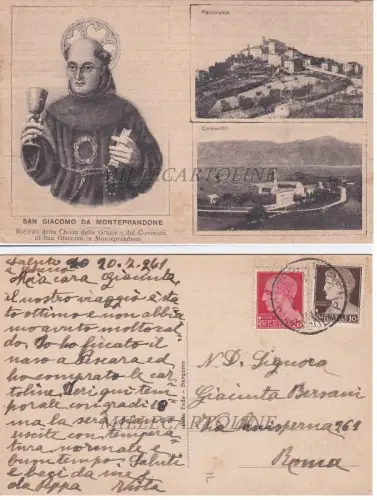 Panorama
Convento
SAN GIACOMO DA MONTEPRANDONE
Ricordo della Chiesa delle Grazie e del Convento
di San Giacomo in Monteprandone
MILLECARTOLINE
Mia cara Giacinta,
il nostro viaggio è sta
to ottimo e non abbia
mo avuto molto cal
do. Io ho ficcato il
naso a Pescara ed
ho comprato le car
toline. Ieri qui tem
porale con gradi 18
ma la sera siamo
uscite con tempera
tura normale e
buon tempo. Saluti
e baci da noi
da Peppa
N. D. Signora
Giacinta Bersani
Via Panisperna 261
Roma
MILLECARTOLINE